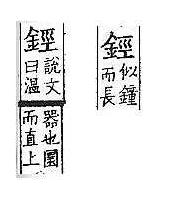 鋞
似鐘
而長
鋞
說文
曰溫
器也圜
而直上